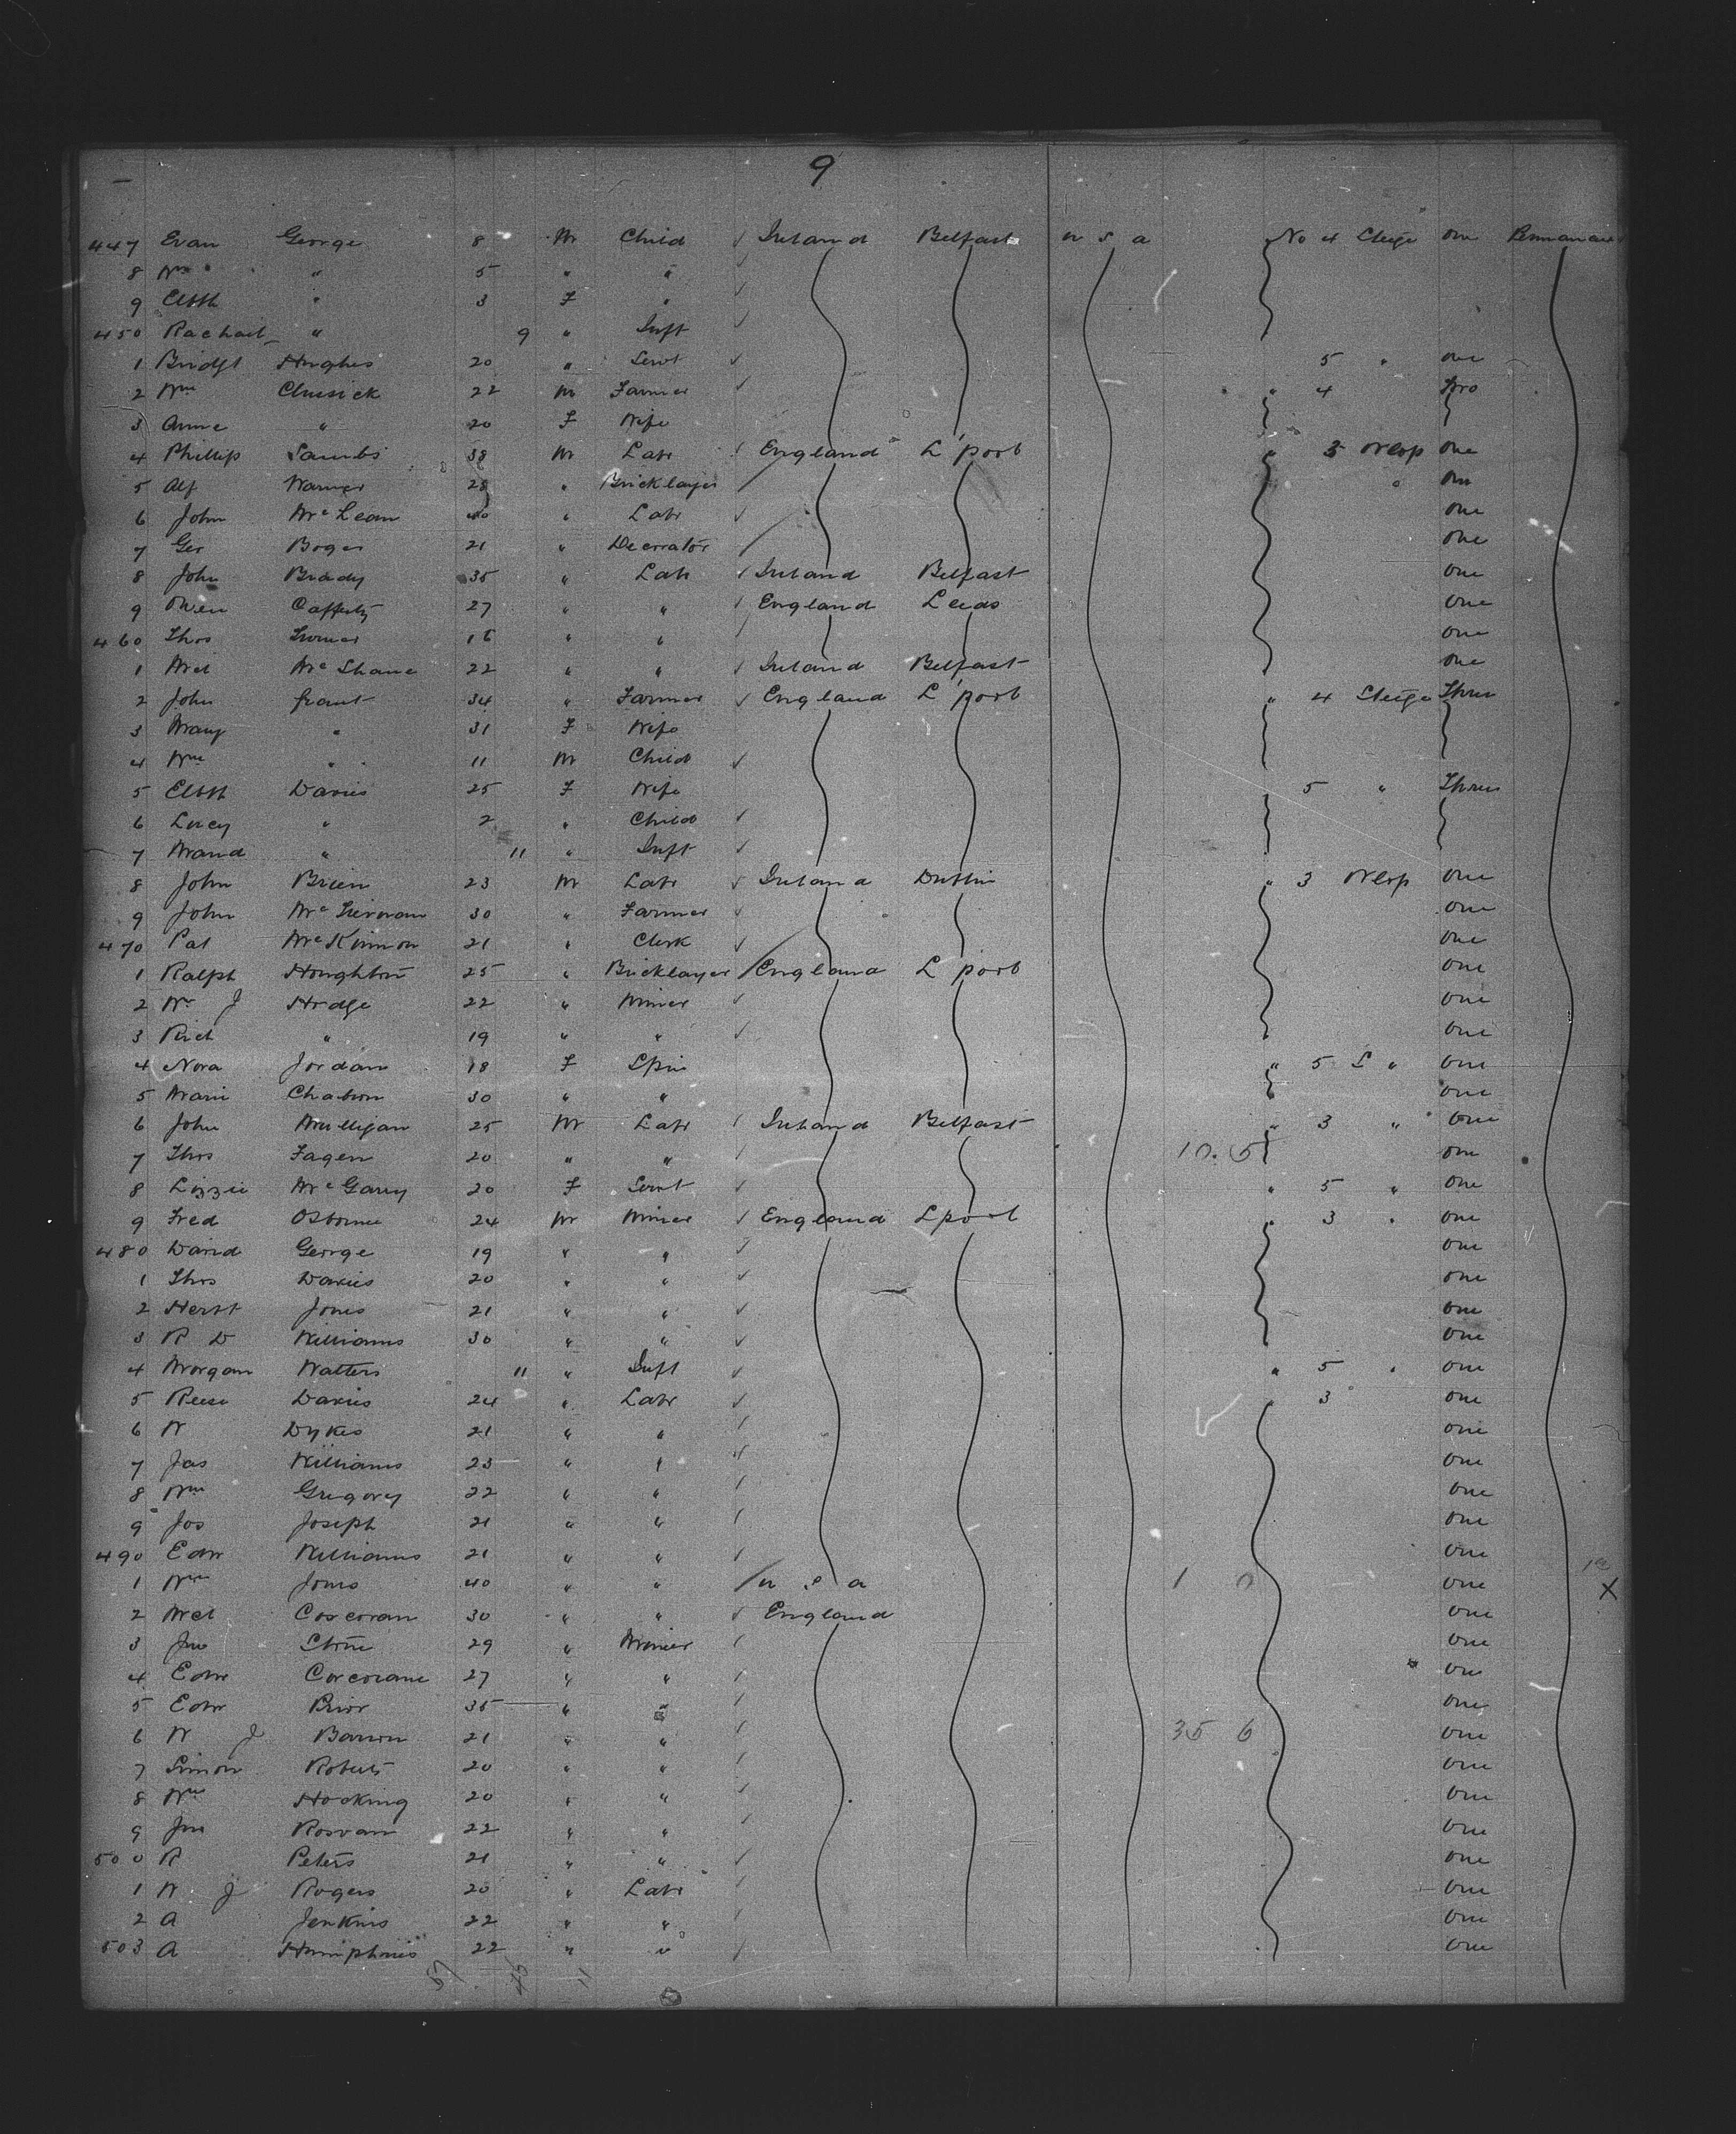 9
447 Evan George 8 M Child Ireland Belfast U S A No 4 Steege one Permanent
8 Wm " 5 " "
9 Elbth " 3 F "
450 Rachail " 9 " Inft
1 Bridgt Hughes 20 " Servt 5 " one
2 Wm Clusick 22 M Farmer " 4 Two
3 Annie " 20 F Wife
4 Phillip 38 M Labr England L'pool " 3 one
5 Alf Warner 28 " Bricklayer " one
6 John McLean 40 " Labr one
7 Geo Boger 21 " Decorator one
8 John Brady 35 " Labr Ireland Belfast one
9 Owen Cafferty 27 " " England Leeds one
460 Thos Turner " " one
1 Mcl McShane 22 " " Ireland Belfast one
2 John Grant 34 " Farmer England L'pool " 4 Steege Three
3 Mary " 31 F Wife
4 Wm " 11 M Child
5 Elbth Davies 25 F Wife 5 " Three
6 Lucy " 2 " Child
7 Maud " 11 " Inft
8 John Brien 23 M Labr Ireland Dublin " 3 one
9 John McTiernan 30 " Farmer one
470 Pat McKinnon 21 " Clerk one
1 Ralph Houghton 25 " Bricklayer England L'pool one
2 Wm J Hodge 22 " Miner one
3 Rich " 19 " " one
4 Nora Jordan 18 F Spin " 5 S " one
5 Marie 30 " " one
6 John Mulligan 25 M Labr Ireland Belfast " 3 " one
7 Thos Fagen 20 " " 10. 5 one
8 Lizzie McGarry 20 F Servt " 5 " one
9 Fred Osborne 24 M Miner England Lpool " 3 " one
480 David George 19 " " one
1 Thos Davies 20 " " one
2 Herbt Jones 21 " " one
3 R D Williams 30 " " one
4 Morgan Watters 11 " Inft " 5 " one
5 Reese Davies 24 " Labr " 3 one
6 W Dykes 21 " " one
7 Jas Williams 23 " " one
8 Wm Gregory 22 " " one
9 Jos Joseph 21 " " one
490 Edw Williams 21 " " one
1 Wm Jones 40 " " U S A 1 0 one X
2 Mcl Corcoran 30 " " England one
3 Jno Stone 29 " Miner one
4 Edw Corcorane 27 " " one
5 Edw Prior 35 " " one
6 W J Barron 21 " " 35 6 one
7 Simon Roberts 20 " " one
8 Wm Hocking 20 " " one
9 Jno Rosvan 22 " " one
500 R Peters 21 " " one
1 W J Rogers 20 " Labr one
2 A Jenkins 22 " " one
503 A Humphries 22 " " one